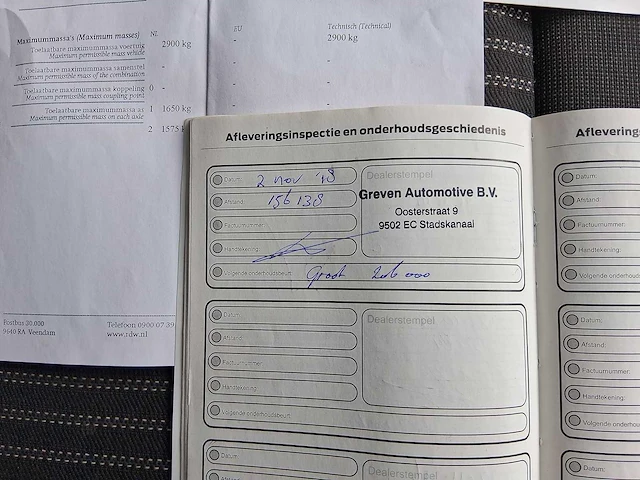 Maximummassa's (Maximum masses) NL EU Technisch (Technical)
Toelaatbare maximummassa voertuig 2900 kg - 2900 kg
Maximum permissible mass vehicle
Toelaatbare maximummassa samenstel - -
Maximum permissible mass of the combination
Toelaatbare maximummassa koppeling 0 - -
Maximum permissible mass coupling point
Toelaatbare maximummassa as 1 1650 kg
Maximum permissible mass on each axle
2 1575 k
Postbus 30.000 Telefoon 0900 07 39
9640 RA Veendam www.rdw.nl
Afleveringsinspectie en onderhoudsgeschiedenis
Datum: 2 nov '18
Afstand: 156 138
Factuurnummer:
Handtekening:
Volgende onderhoudsbeurt: Groot 206 000
Dealerstempel
Greven Automotive B.V.
Oosterstraat 9
9502 EC Stadskanaal
Datum:
Afstand:
Factuurnummer:
Handtekening:
Volgende onderhoudsbeurt:
Dealerstempel
Datum:
Afstand:
Dealerstempel
Aflevering
Datum:
Afstand:
Factuurnummer:
Handtekening:
Volgende onderhoud
Datum:
Afstand:
Factuurnummer:
Handtekening:
Volgende onderhou
Datum: